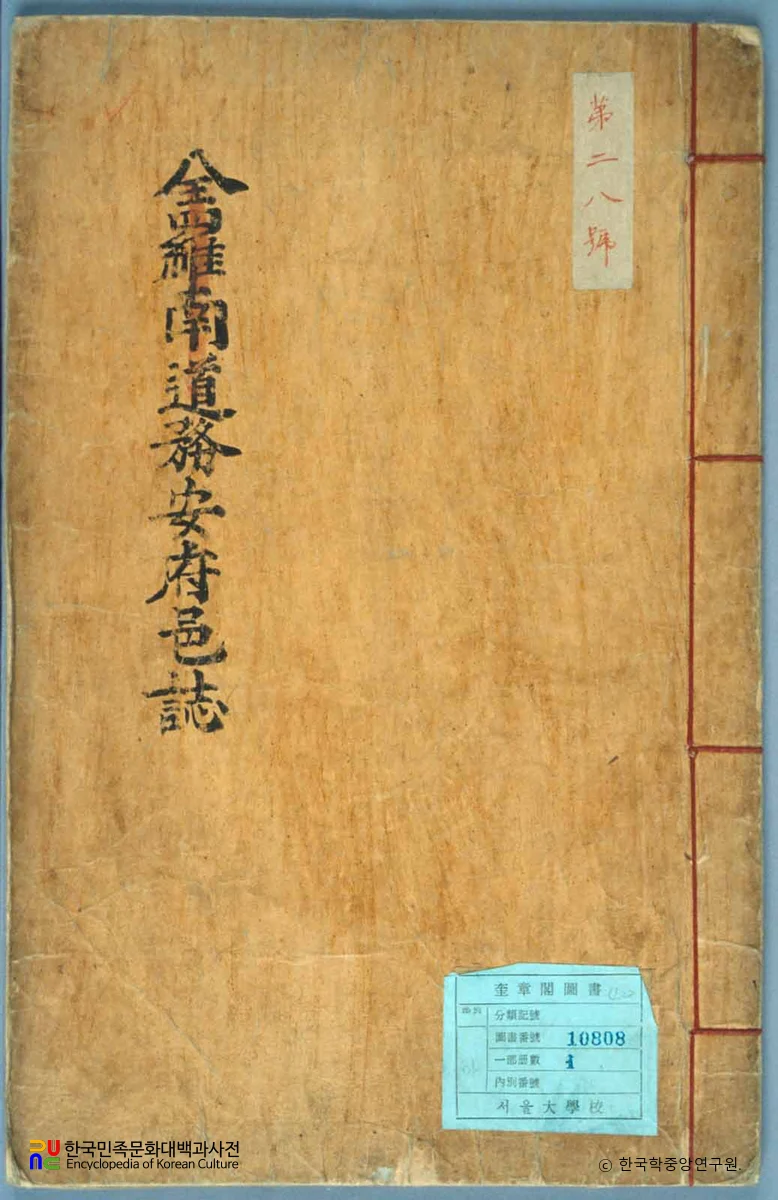 第二八號
全羅南道務安府邑誌
奎章閣圖書
分類記號
圖書番號 10808
一部冊數 1
內別番號
서울大學校
한국민족문화대백과사전
Encyclopedia of Korean Culture
ⓒ 한국학중앙연구원